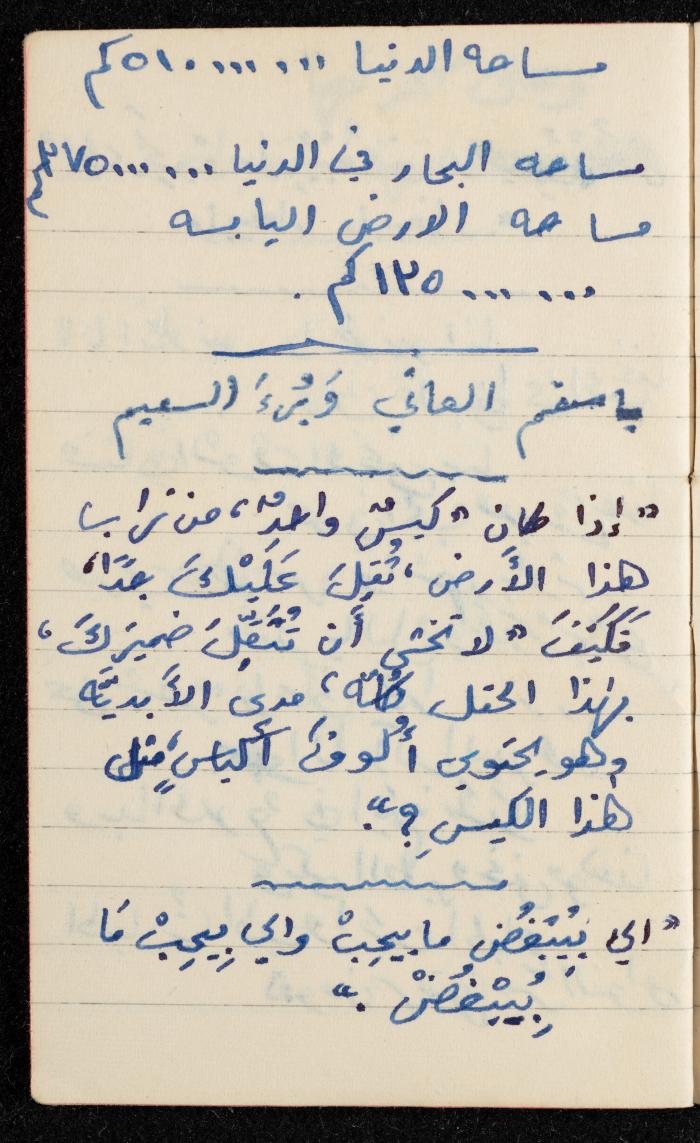 مساحه الدنيا ٥١٠٠٠٠٠٠٠ كم
مساحه البحار في الدنيا ٣٧٥٠٠٠٠٠٠ كم
مساحه الارض اليابسه
١٣٥٠٠٠٠٠٠ كم.
يا سقم العاني وَبُرءَ السقيم
"إذا كان "كيسٌ واحدٌ"، من تراب
هذا الأَرض، ثُقِلَ عَلَيْكَ جدًا،
فَكَيَفَ "لا تخشى أَن تُثَقِّلَ ضميرَكَ،
بهذا الحقل كُلّه، مدى الأَبديَّه
وهو يحتوي أُلوفَ أكياسٍ، مثل
هذا الكيس؟".
"الي بِيُبْغُضْ ما بيحِبْ والي بِيحِبْ مَا
بِيُبْغُضْ".